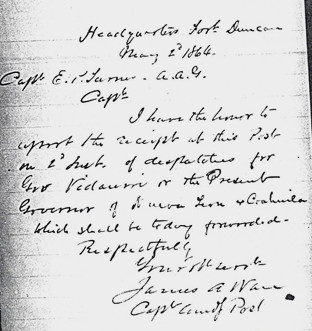 Headquarters Fort Duncan
May 2d 1864.
Capt E. P. Turner A.A.G.
Capt
I have the honor to
report the receipt at this Post
on 2d Inst. of despatches for
Gov Vidaurri or the Present
Governor of Nueva Leon & Coahuila
which shall be today forwarded.
Respectfully
Your Obt
James A Ware
Capt Comdg Post